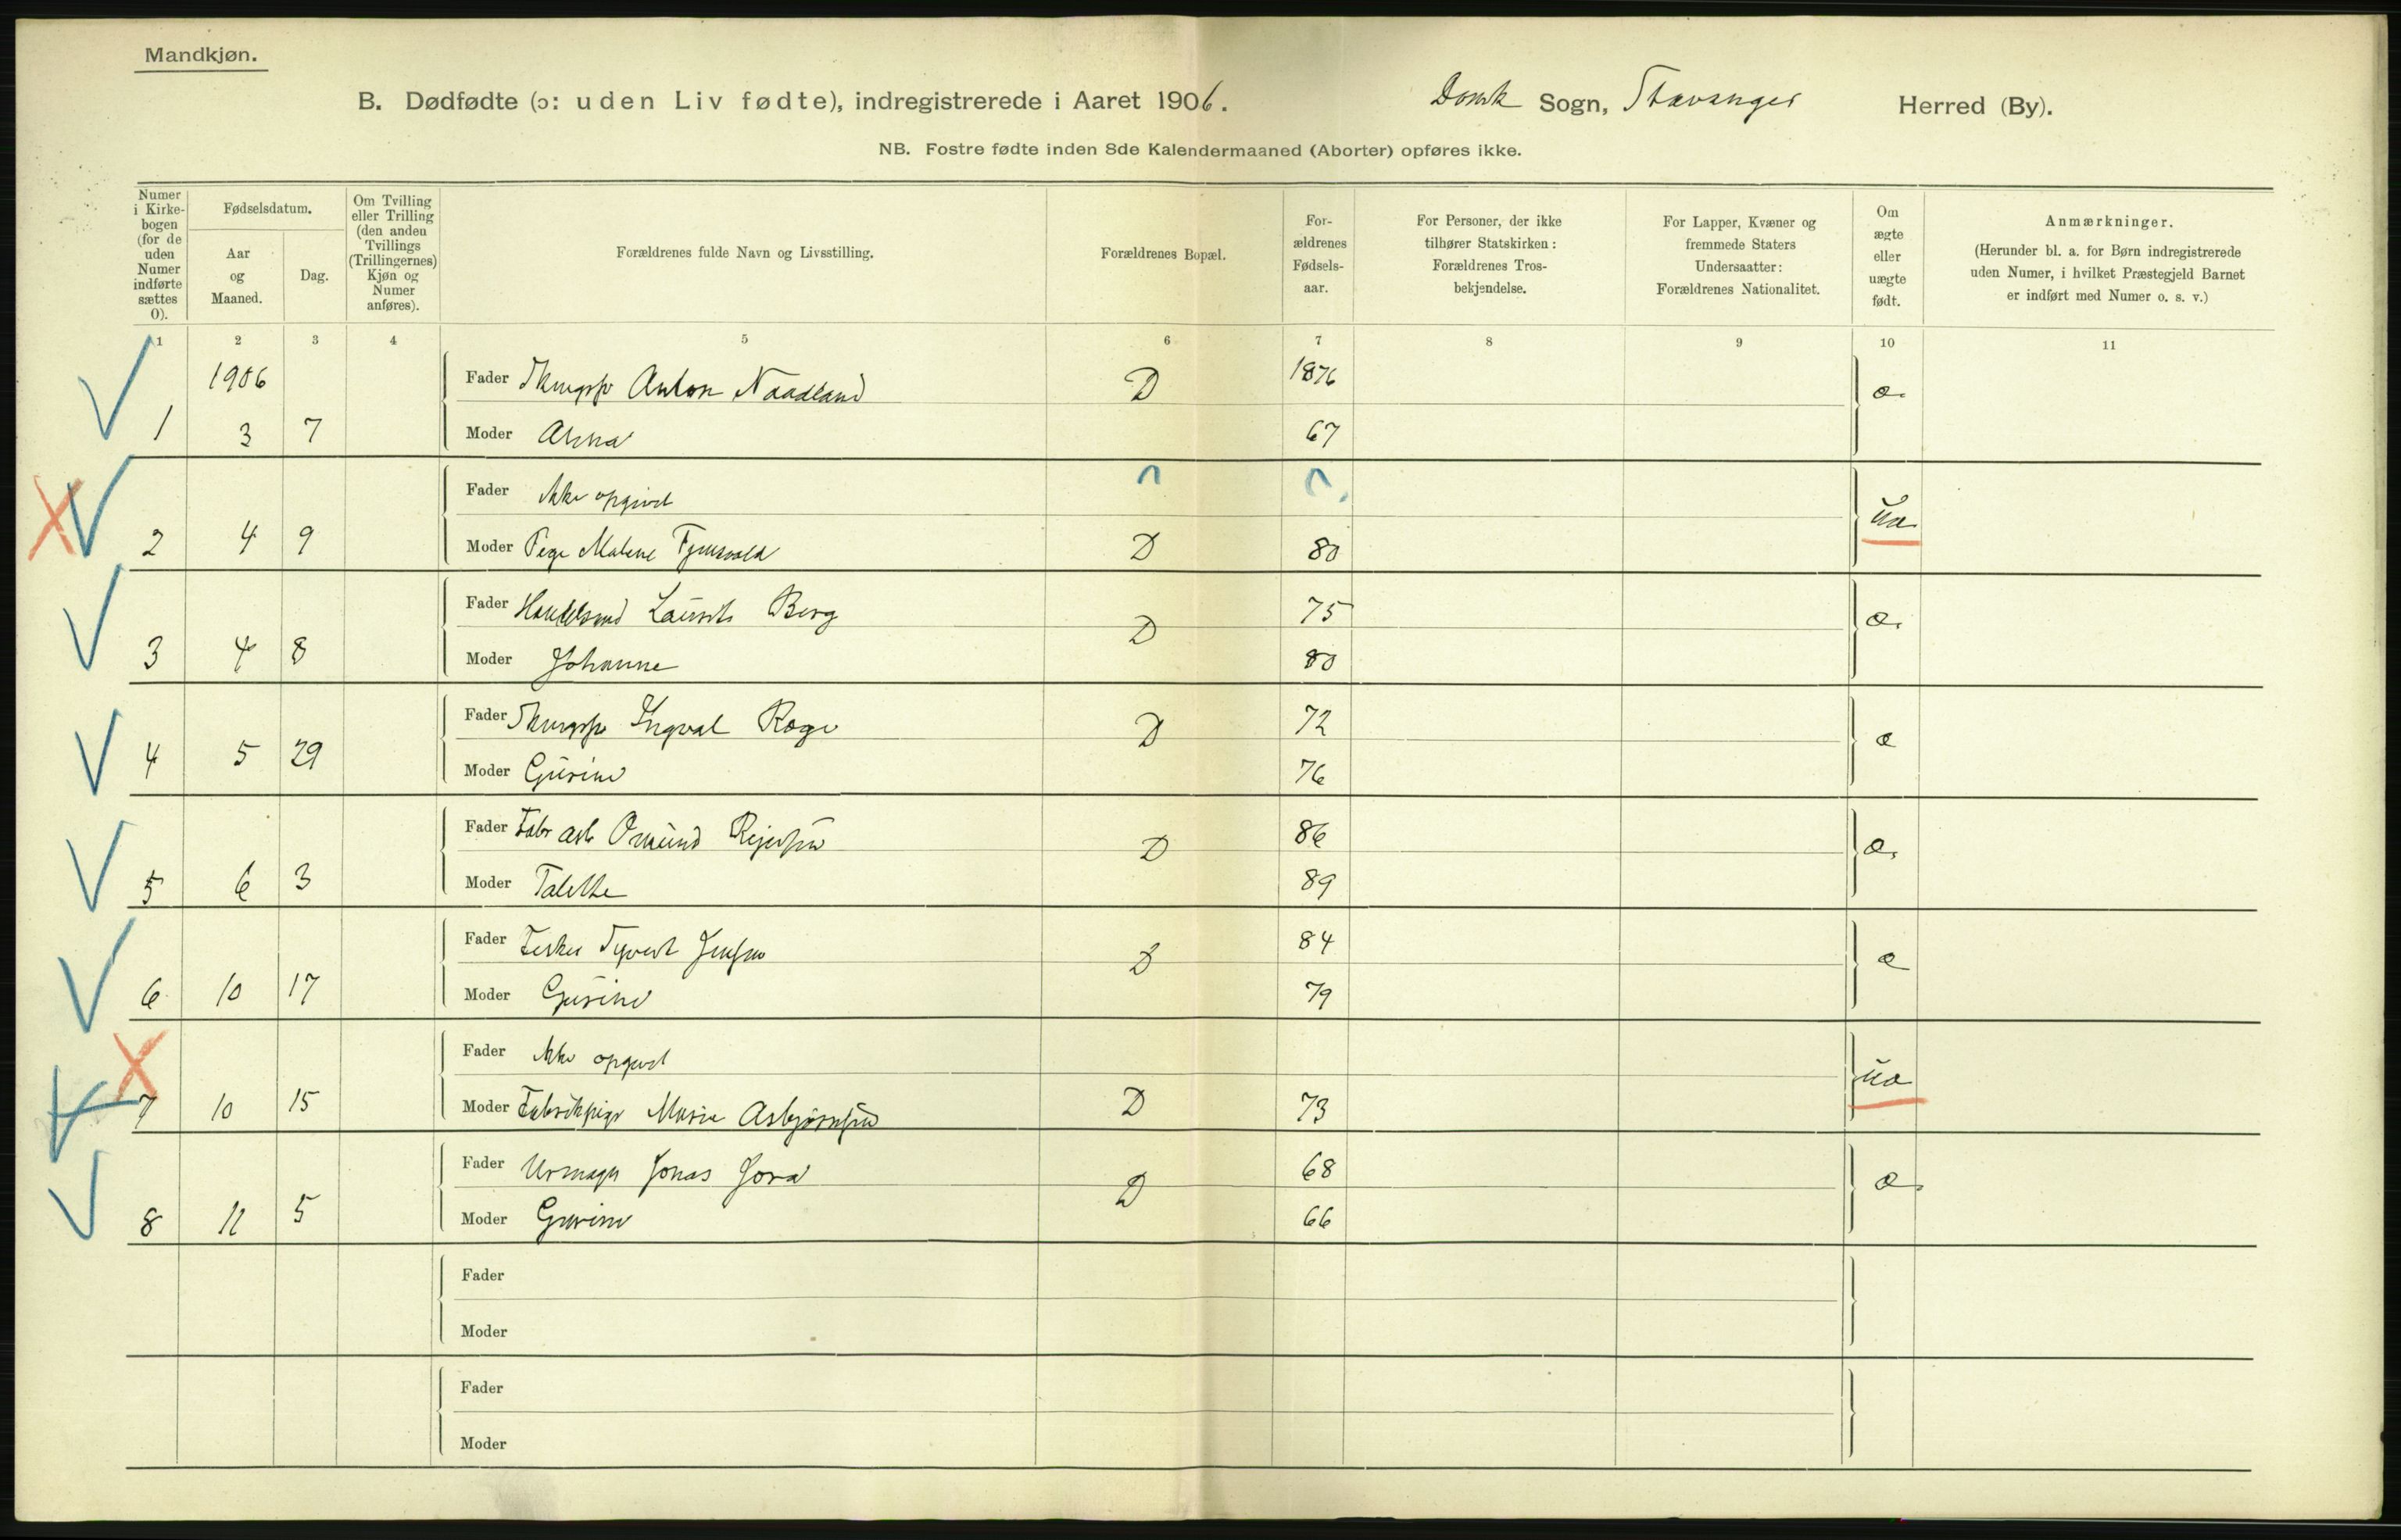 Mandkjøn.
B. Dødfødte (ɔ: uden Liv fødte), indregistrerede i Aaret 1906. Domk Sogn, Stavanger Herred (By).
NB. Fostre fødte inden 8de Kalendermaaned (Aborter) opføres ikke.
Numer i Kirke- bogen (for de uden Numer indførte sættes 0).
Fødselsdatum.
Aar og Maaned.
Dag.
Om Tvilling eller Trilling (den anden Tvillings (Trillingernes) Kjøn og Numer anføres).
Forældrenes fulde Navn og Livsstilling.
Forældrenes Bopæl.
For- ældrenes Fødsels- aar.
For Personer, der ikke tilhører Statskirken: Forældrenes Tros- bekjendelse.
For Lapper, Kvæner og fremmede Staters Undersaatter: Forældrenes Nationalitet.
Om ægte eller uægte født.
Anmærkninger.
(Herunder bl. a. for Børn indregistrerede uden Numer, i hvilket Præstegjeld Barnet er indført med Numer o. s. v.)
1 2 3 4 5 6 7 8 9 10 11
1906 Fader Anton Naadland D 1876 æ.
1 3 7 Moder Anna 67
Fader Ikke opgivet
2 4 9 Moder Pige Malene D 80 uæ
Fader Laurits Berg D 75 æ.
3 4 8 Moder Johanne 80
Fader Ingval Rage D 72 æ
4 5 29 Moder Gurine 76
Fader Fabr arb Omund Rejersen D 86 æ.
5 6 3 Moder Talette 89
Fader Fisker Syvert Jensen D 84 æ
6 10 17 Moder Gurine 79
Fader Ikke opgivet
7 10 15 Moder Fabrikpige Marie Asbjørnsen D 73 uæ
Fader Urmager Jonas D 68 æ.
8 11 5 Moder Gurine 66
Fader
Moder
Fader
Moder